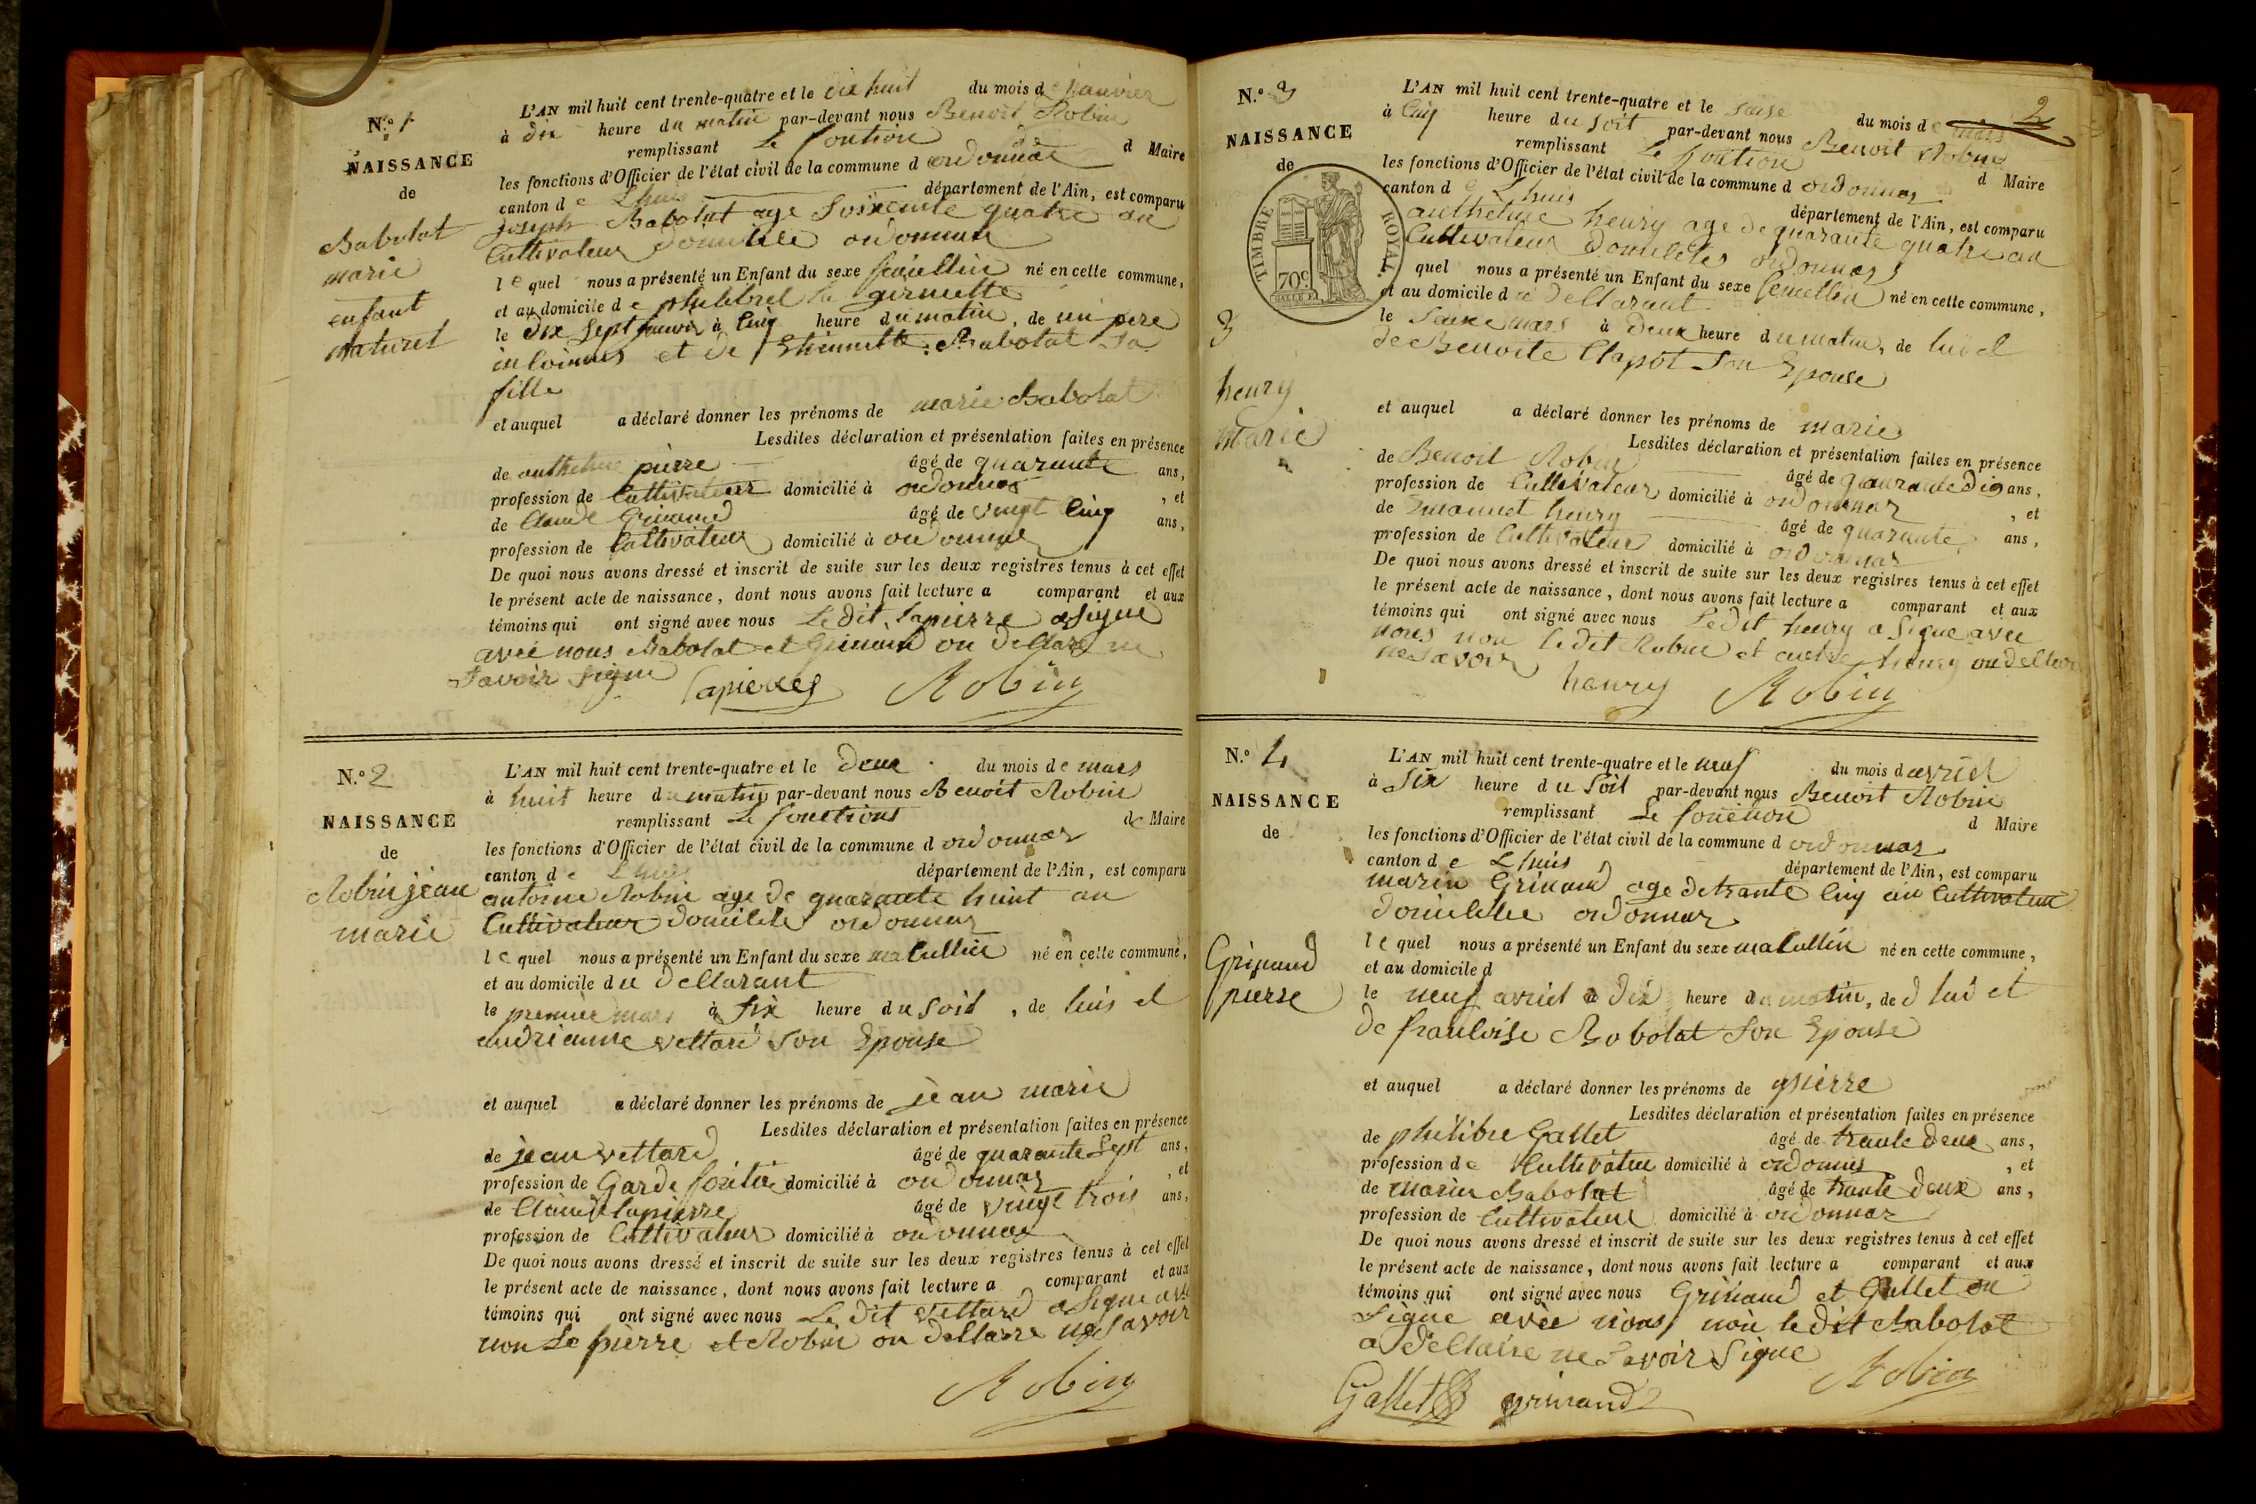 N.º 1
NAISSANCE
de
Babolat
marie
enfant
naturel
L'AN mil huit cent trente-quatre et le dix huit du mois de janvier
à dix heure du matin par-devant nous Benoit Robin
remplissant le fontion d Maire
les fonctions d'Officier de l'état civil de la commune d ordonnas
canton de Lhuis département de l'Ain, est comparu
joseph Babolat age soixente quatre an
Cultivateur domicilié ordonnas
le quel nous a présenté un Enfant du sexe né en cette commune,
et au domicile de
le dix sept janvié à cinq heure du matin, de un pere
et de Babolat sa
fille
et auquel a déclaré donner les prénoms de marie Babolat
Lesdites déclaration et présentation faites en présence
de anthelme pierre âgé de quarante ans,
profession de Cultivateur domicilié à ordonnas, et
de Claude Grinand âgé de vingt cinq ans,
profession de Cultivateur domicilié à ordonnas
De quoi nous avons dressé et inscrit de suite sur les deux registres tenus à cet effet
le présent acte de naissance, dont nous avons fait lecture a comparant et aux
témoins qui ont signé avec nous Le dit Lapierre a signe
avec nous Babolat et Grinand on déllare ne
savoir signe
Lapierre Robin
N.º 2
NAISSANCE
de
Robin jean
marie
L'AN mil huit cent trente-quatre et le deux du mois de mars
à huit heure du matin par-devant nous Benoit Robin
remplissant le fonctions de Maire
les fonctions d'Officier de l'état civil de la commune d ordonnas
canton de Lhuis département de l'Ain, est comparu
antoine Robin age de quarante huint an
Cultivateur domicilié ordonnas
le quel nous a présenté un Enfant du sexe macullin né en cette commune,
et au domicile du dellarant
le premier mars à six heure du soit, de luis et
andrianne vettard son Epouse
et auquel a déclaré donner les prénoms de jean marie
Lesdites déclaration et présentation faites en présence
de jean vettard âgé de quarante sept ans,
profession de Garde domicilié à ordonnas, et
de Claude lapierre âgé de vingt trois ans,
profession de Cultivateur domicilié à ordonnas
De quoi nous avons dressé et inscrit de suite sur les deux registres tenus à cet effet
le présent acte de naissance, dont nous avons fait lecture a comparant et aux
témoins qui ont signé avec nous Le dit vettard a signe avec
nou Le pierre et Robin on dellaire ne savoir
Robin
2
N.º 3
NAISSANCE
de
TIMBRE ROYAL
70c
3
henry
marie
L'AN mil huit cent trente-quatre et le saise du mois de mars
à Cinq heure du soit par-devant nous Benoit Robin
remplissant le fontion d Maire
les fonctions d'Officier de l'état civil de la commune d ordonnas
canton de Lhuis département de l'Ain, est comparu
anthelme henry age de quarante quatre an
Cultivateur domiciliés ordonnas
quel nous a présenté un Enfant du sexe femellin né en cette commune,
et au domicile du dellarant
le saixe mars à deux heure du matin, de lui et
de Benoite Clapot son Epouse
et auquel a déclaré donner les prénoms de marie
Lesdites déclaration et présentation faites en présence
de Benoit Robin âgé de ans,
profession de Cultivateur domicilié à ordonnas, et
de Emanuel henry âgé de quarante ans,
profession de Cultivateur domicilié à ordonnas
De quoi nous avons dressé et inscrit de suite sur les deux registres tenus à cet effet
le présent acte de naissance, dont nous avons fait lecture a comparant et aux
témoins qui ont signé avec nous Le dit henry a signe avec
nous non le dit Robin et henry on dellar
ne savoir
henry Robin
N.º 4
NAISSANCE
de
Grinand
pierre
L'AN mil huit cent trente-quatre et le neuf du mois d avriel
à six heure du soit par-devant nous Benoit Robin
remplissant le d Maire
les fonctions d'Officier de l'état civil de la commune d ordonnas
canton de Lhuis département de l'Ain, est comparu
marin Grinand age de trante cinq an Cultivateur
domicilié ordonnas
le quel nous a présenté un Enfant du sexe macullin né en cette commune,
et au domicile d
le neuf avriel à dix heure du matin, de d lui et
de francoise Babolat son Epouse
et auquel a déclaré donner les prénoms de pierre
Lesdites déclaration et présentation faites en présence
de philibre Gallet âgé de trante deux ans,
profession de Cultivateur domicilié à ordonnas, et
de marin Babolat âgé de trante deux ans,
profession de Cultivateur domicilié à ordonnas
De quoi nous avons dressé et inscrit de suite sur les deux registres tenus à cet effet
le présent acte de naissance, dont nous avons fait lecture a comparant et aux
témoins qui ont signé avec nous Grinand et Gallet on
signe avec nous non le dit Babolat
a dellaire ne savoir signe
Gallet grinand Robin